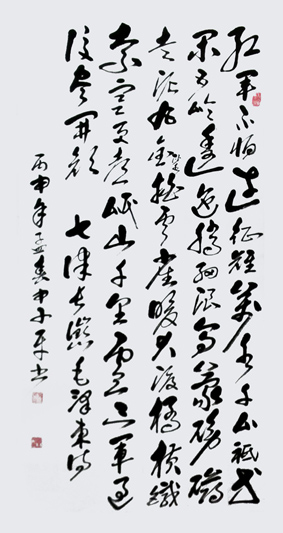 红軍不怕遠征難萬水千山祗等
閑五岭逶迤騰細浪烏蒙磅礴
走泥丸金沙水拍雲崖暖大渡橋横鐵
索寒更喜岷山千里雪三軍過
後盡開顔 七律長征 毛澤東詩
丙申年孟春 書